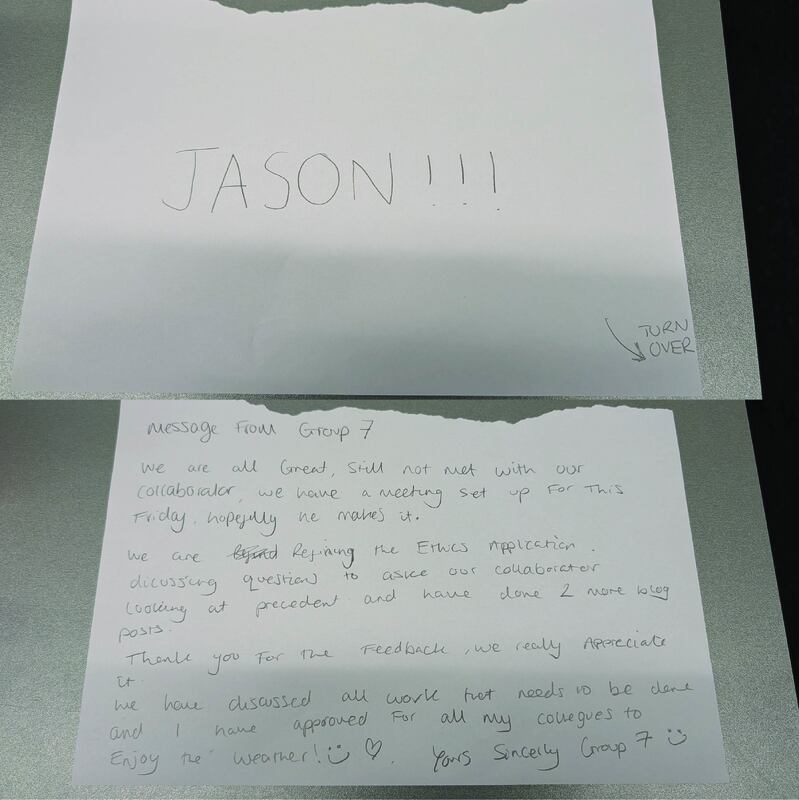 JASON!!!
TURN
OVER
Message From Group 7
We are all Great, Still not met with our
collaborator, we have a meeting set up For This
Friday, hopefully he makes it.
We are Refining the Ethics Application.
dicussing question to aske our collaborator
Looking at precedent and have done 2 more blog
posts.
Thank you For the Feedback, we really Appreciate
it.
We have discussed all work that needs to be done
and I have approved For all my collegues to
Enjoy the weather! Yours Sincerly Group 7